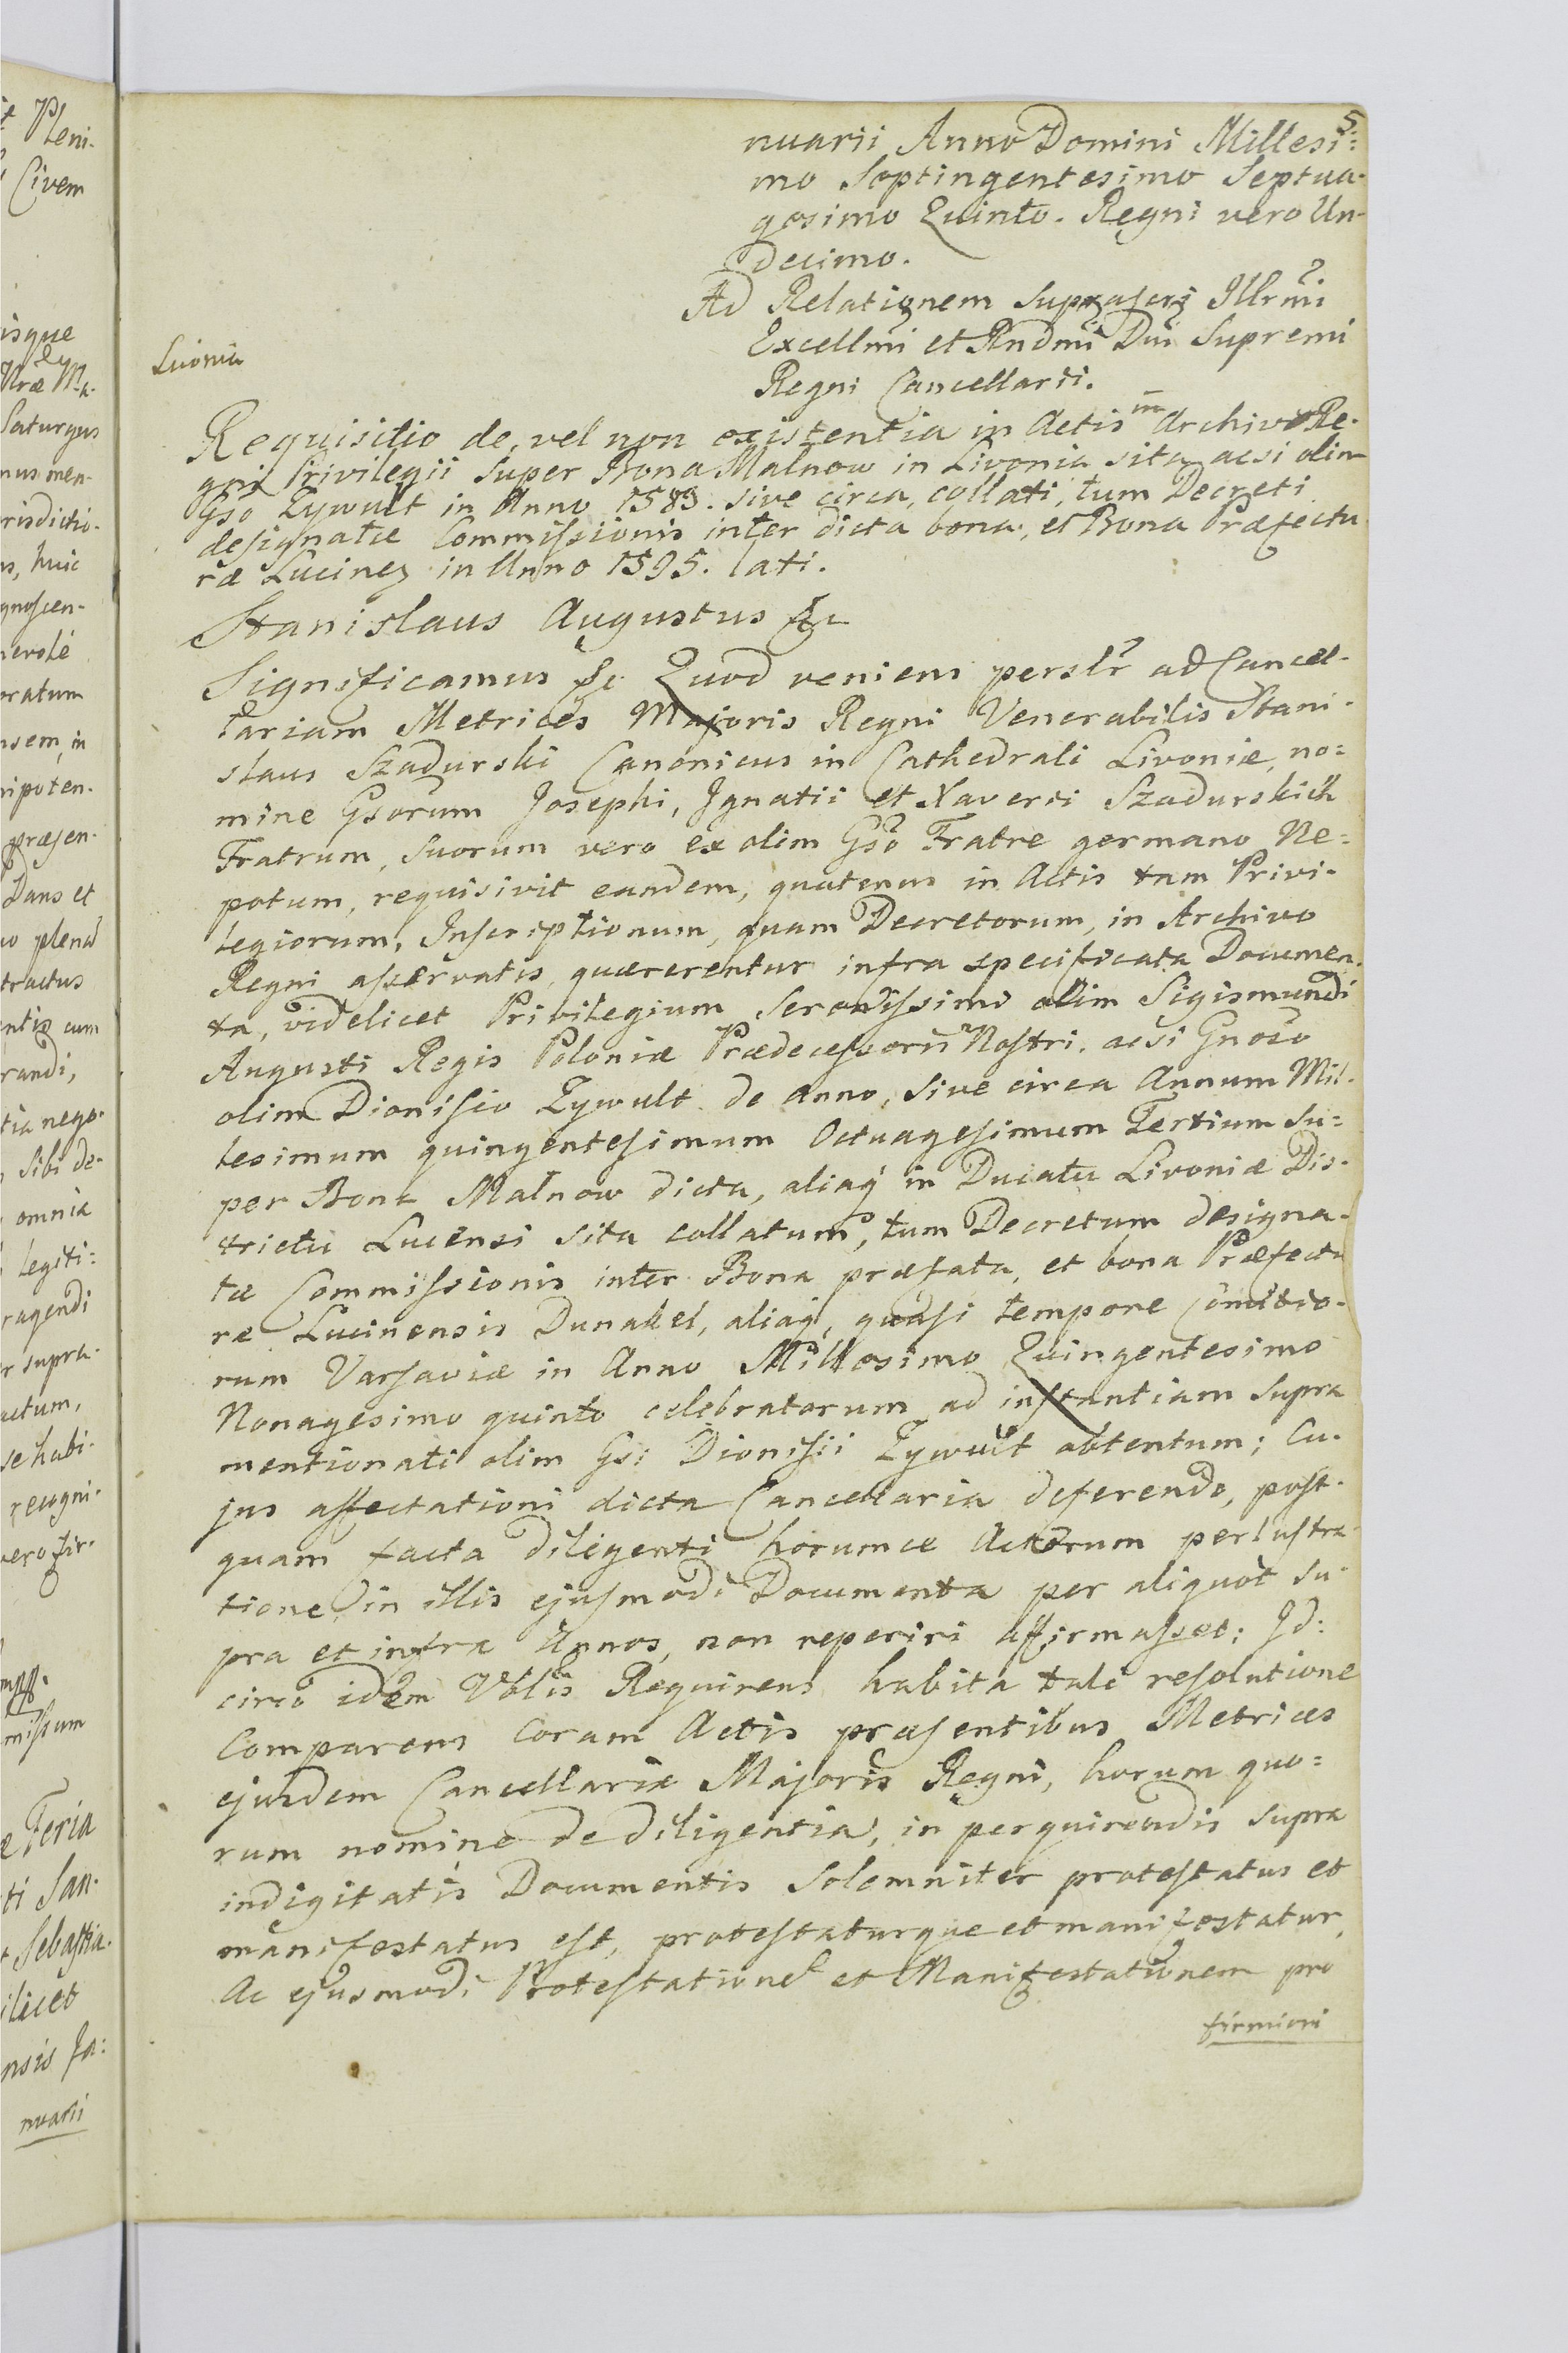 5
nuarii Anno Domini Millesi:
mo Septingentesimo Septua-
gesimo Quinto. Regni vero Un-
decimo.
Ad Relationem suprascri Illrmi
Excellmi et Rndmi Dni Supremi
Regni Cancellarii.
Livonia
Requisitio de, vel non existentia in Actis in Archivo Re-
gni Privilegii super Bona Malnow in Livonia sita acsi olim
Gso Zywult in Anno 1583. sive circa, collati, tum Decreti
designatæ Commissionis inter dicta bona, et Bona Præfectu
ræ Lucinen in Anno 1595. lati.
Stanislaus Augustus &c
Significamus &c Quod veniens perslr ad Cancel-
lariam Metrices Majoris Regni Venerabilis Stani-
slaus Szadurski Canonicus in Cathedrali Livoniæ, no=
mine Gsorum Josephi, Ignatii et Xaverii Szadurskich
Fratrum, suorum vero ex olim Gso Fratre germano Ne=
potum, requisivit eandem, quatenus in Actis tam Privi-
legiorum, Inscriptionum, quam Decretorum, in Archivo
Regni asservatis, quærerentur infra specificata Documen-
ta, videlicet Privilegium Serenissimi olim Sigismundi
Augusti Regis Poloniæ Prædecessoris Nostri. acsi Gnoso
olim Dionisio Zywult de Anno, sive circa Annum Mil-
lesimum quingentesimum Octuagesimum Tertium su=
per Bona Malnow dicta, aliaq in Ducatu Livoniæ Dis-
trictu Lucensi sita collatum, tum Decretum designa-
tæ Commissionis inter Bona præfata, et bona Præfectu
ræ Lucinensis Dunakel, aliaq, quasi tempore Comitio-
rum Varsaviæ in Anno Millesimo Quingentesimo
Nonagesimo quinto celebratorum ad instantiam supra
mentionati olim Gsi Dionisii Zywult obtentum; Cu-
jus affectationi dicta Cancellaria deferendo, post-
quam facta diligenti horumce Actorum perlustra-
tione, in illis ejusmodi Documenta per aliquot su-
pra et infra Annos, non reperiri affirmasset; Id:
circo idem Vblis Requirens habita tali resolutione
Comparens Coram Actis præsentibus Metrices
ejusdem Cancellariæ Majoris Regni, horum quo=
rum nomine de diligentia, in perquirendis supra
indigitatis Documentis Solemniter protestatus et
manifestatus est, protestaturque et manifestatur,
Ac ejusmodi Protestatione et Manifestationem pro
firmiori